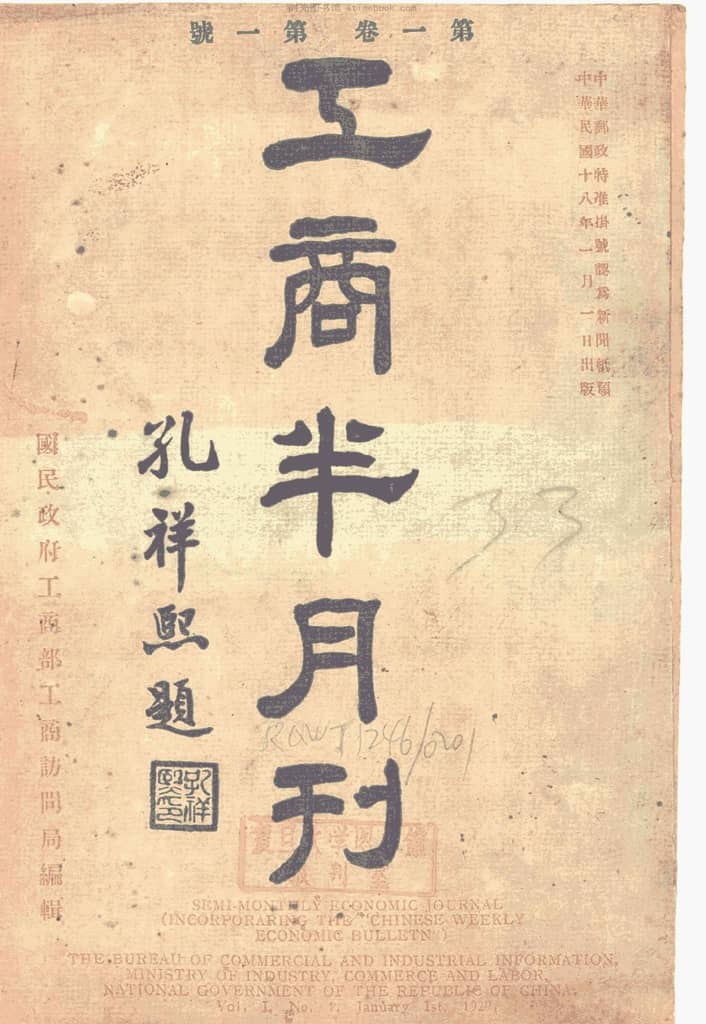 第一卷 第一號
中華郵政特准掛號認爲新聞紙類
中華民國十八年一月一日出版
工商半月刊
孔祥熙題
孔祥熙印
國民政府工商部工商訪問局編輯
33
SEMI-MONTHLY ECONOMIC JOURNAL
(INCORPORARING THE "CHINESE WEEKLY
ECONOMIC BULLETN")
THE BUREAU OF COMMERCIAL AND INDUSTRIAL INFORMATION,
MINISTRY OF INDUSTRY, COMMERCE AND LABOR,
NATIONAL GOVERNMENT OF THE REPUBLIC OF CHINA.
Vol. I, No. 1, January 1st, 1929.